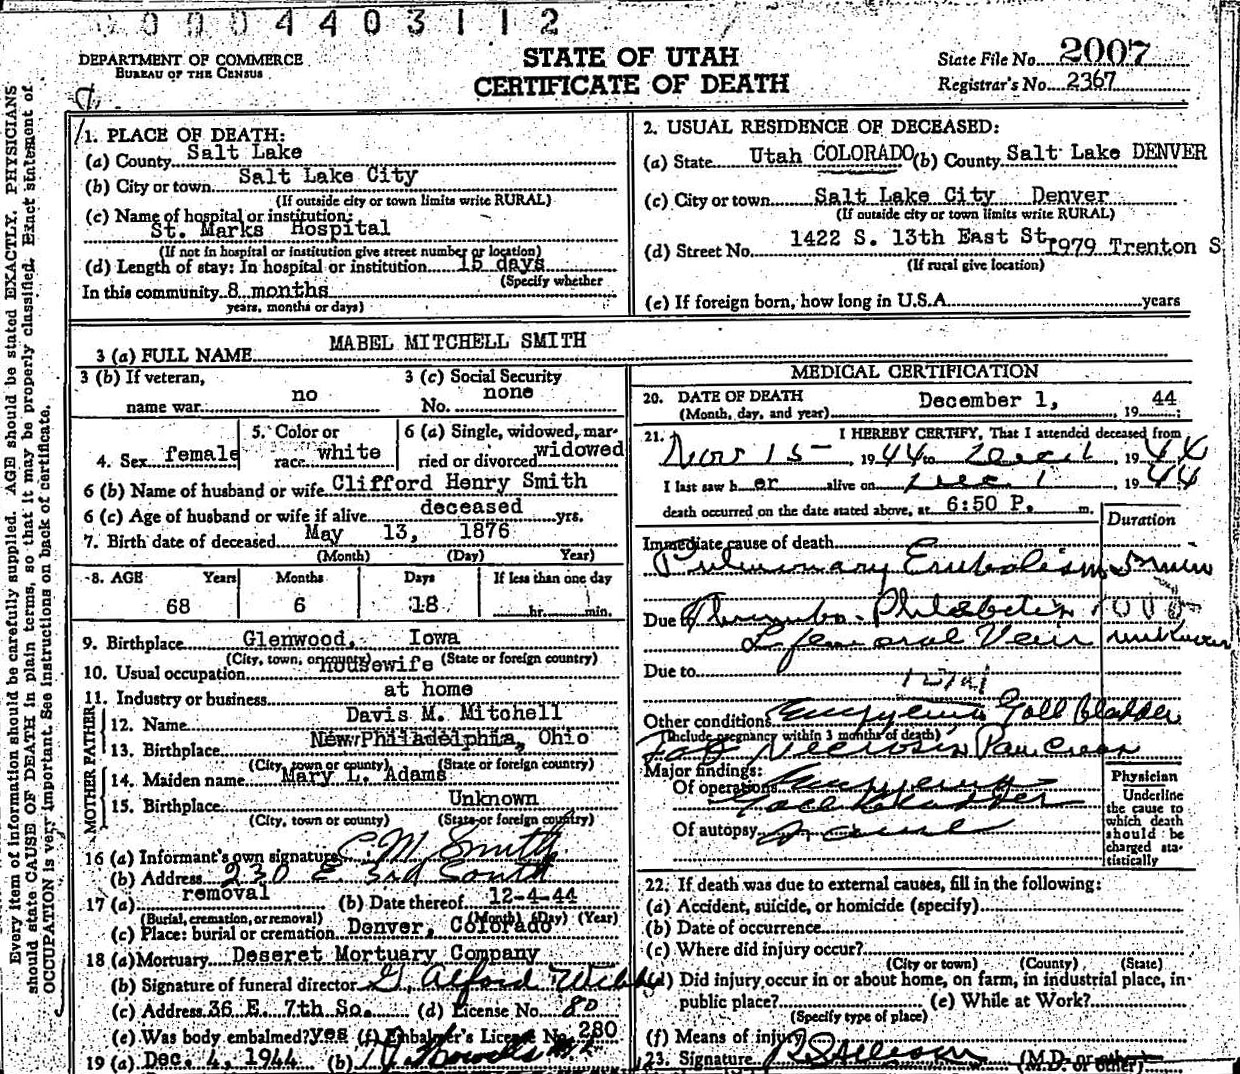 0004403112
DEPARTMENT OF COMMERCE
BUREAU OF THE CENSUS
STATE OF UTAH
CERTIFICATE OF DEATH
State File No. 2007
Registrar's No. 2367
Every item of information should be carefully supplied. AGE should be stated EXACTLY. PHYSICIANS
should state CAUSE OF DEATH in plain terms, so that it may be properly classified. Exact statement of
OCCUPATION is very important. See instructions on back of certificate.
1. PLACE OF DEATH:
(a) County Salt Lake
(b) City or town Salt Lake City
(If outside city or town limits write RURAL)
(c) Name of hospital or institution:
St. Marks Hospital
(If not in hospital or institution give street number or location)
(d) Length of stay: In hospital or institution 15 days
(Specify whether
In this community 8 months
years, months or days)
2. USUAL RESIDENCE OF DECEASED:
(a) State Utah COLORADO (b) County Salt Lake DENVER
(c) City or town Salt Lake City Denver
(If outside city or town limits write RURAL)
(d) Street No. 1422 S. 13th East St. 1979 Trenton S
(If rural give location)
(e) If foreign born, how long in U.S.A. years
3 (a) FULL NAME MABEL MITCHELL SMITH
3 (b) If veteran, name war no
3 (c) Social Security No. none
4. Sex female
5. Color or race white
6 (a) Single, widowed, married or divorced widowed
6 (b) Name of husband or wife Clifford Henry Smith
6 (c) Age of husband or wife if alive deceased yrs.
7. Birth date of deceased May 13, 1876
(Month) (Day) Year)
8. AGE Years Months Days If less than one day
68 6 18 hr. min.
9. Birthplace Glenwood, Iowa
(City, town, or county) (State or foreign country)
10. Usual occupation housewife
11. Industry or business at home
FATHER
12. Name Davis M. Mitchell
13. Birthplace New Philadelphia, Ohio
(City, town or county) (State or foreign country)
MOTHER
14. Maiden name Mary L. Adams
15. Birthplace Unknown
(City, town or county) (State or foreign country)
16 (a) Informant's own signature C M Smith
(b) Address 230 E. 3rd South
17 (a) removal (b) Date thereof 12-4-44
(Burial, cremation, or removal) (Month) (Day) (Year)
(c) Place: burial or cremation Denver, Colorado
18 (a) Mortuary Deseret Mortuary Company
(b) Signature of funeral director G. Alford Webb
(c) Address 36 E. 7th So. (d) License No. 80
(e) Was body embalmed? yes (f) Embalmer's License No. 280
19 (a) Dec. 4, 1944 (b)
MEDICAL CERTIFICATION
20. DATE OF DEATH
(Month, day, and year) December 1, 1944
21. I HEREBY CERTIFY, That I attended deceased from
Nov 15 1944 to Dec 1, 1944
I last saw her alive on Dec 1 1944
death occurred on the date stated above, at 6:50 P. m.
Duration
Immediate cause of death
Pulmonary Embolism 5 min
Due Thrombo-Phlebitis
L femoral Vein unknown
Due to
Other conditions Empyema Gall Bladder
(Include pregnancy within 3 months of death)
Fat Necrosis Pancreas
Major findings:
Of operations Empyema
Gall Bladder
Of autopsy
Physician
Underline
the cause to
which death
should be
charged sta-
tistically
22. If death was due to external causes, fill in the following:
(a) Accident, suicide, or homicide (specify)
(b) Date of occurrence
(c) Where did injury occur?
(City or town) (County) (State)
(d) Did injury occur in or about home, on farm, in industrial place, in
public place? (e) While at Work?
(Specify type of place)
(f) Means of injury
23. Signature (M.D. or other)